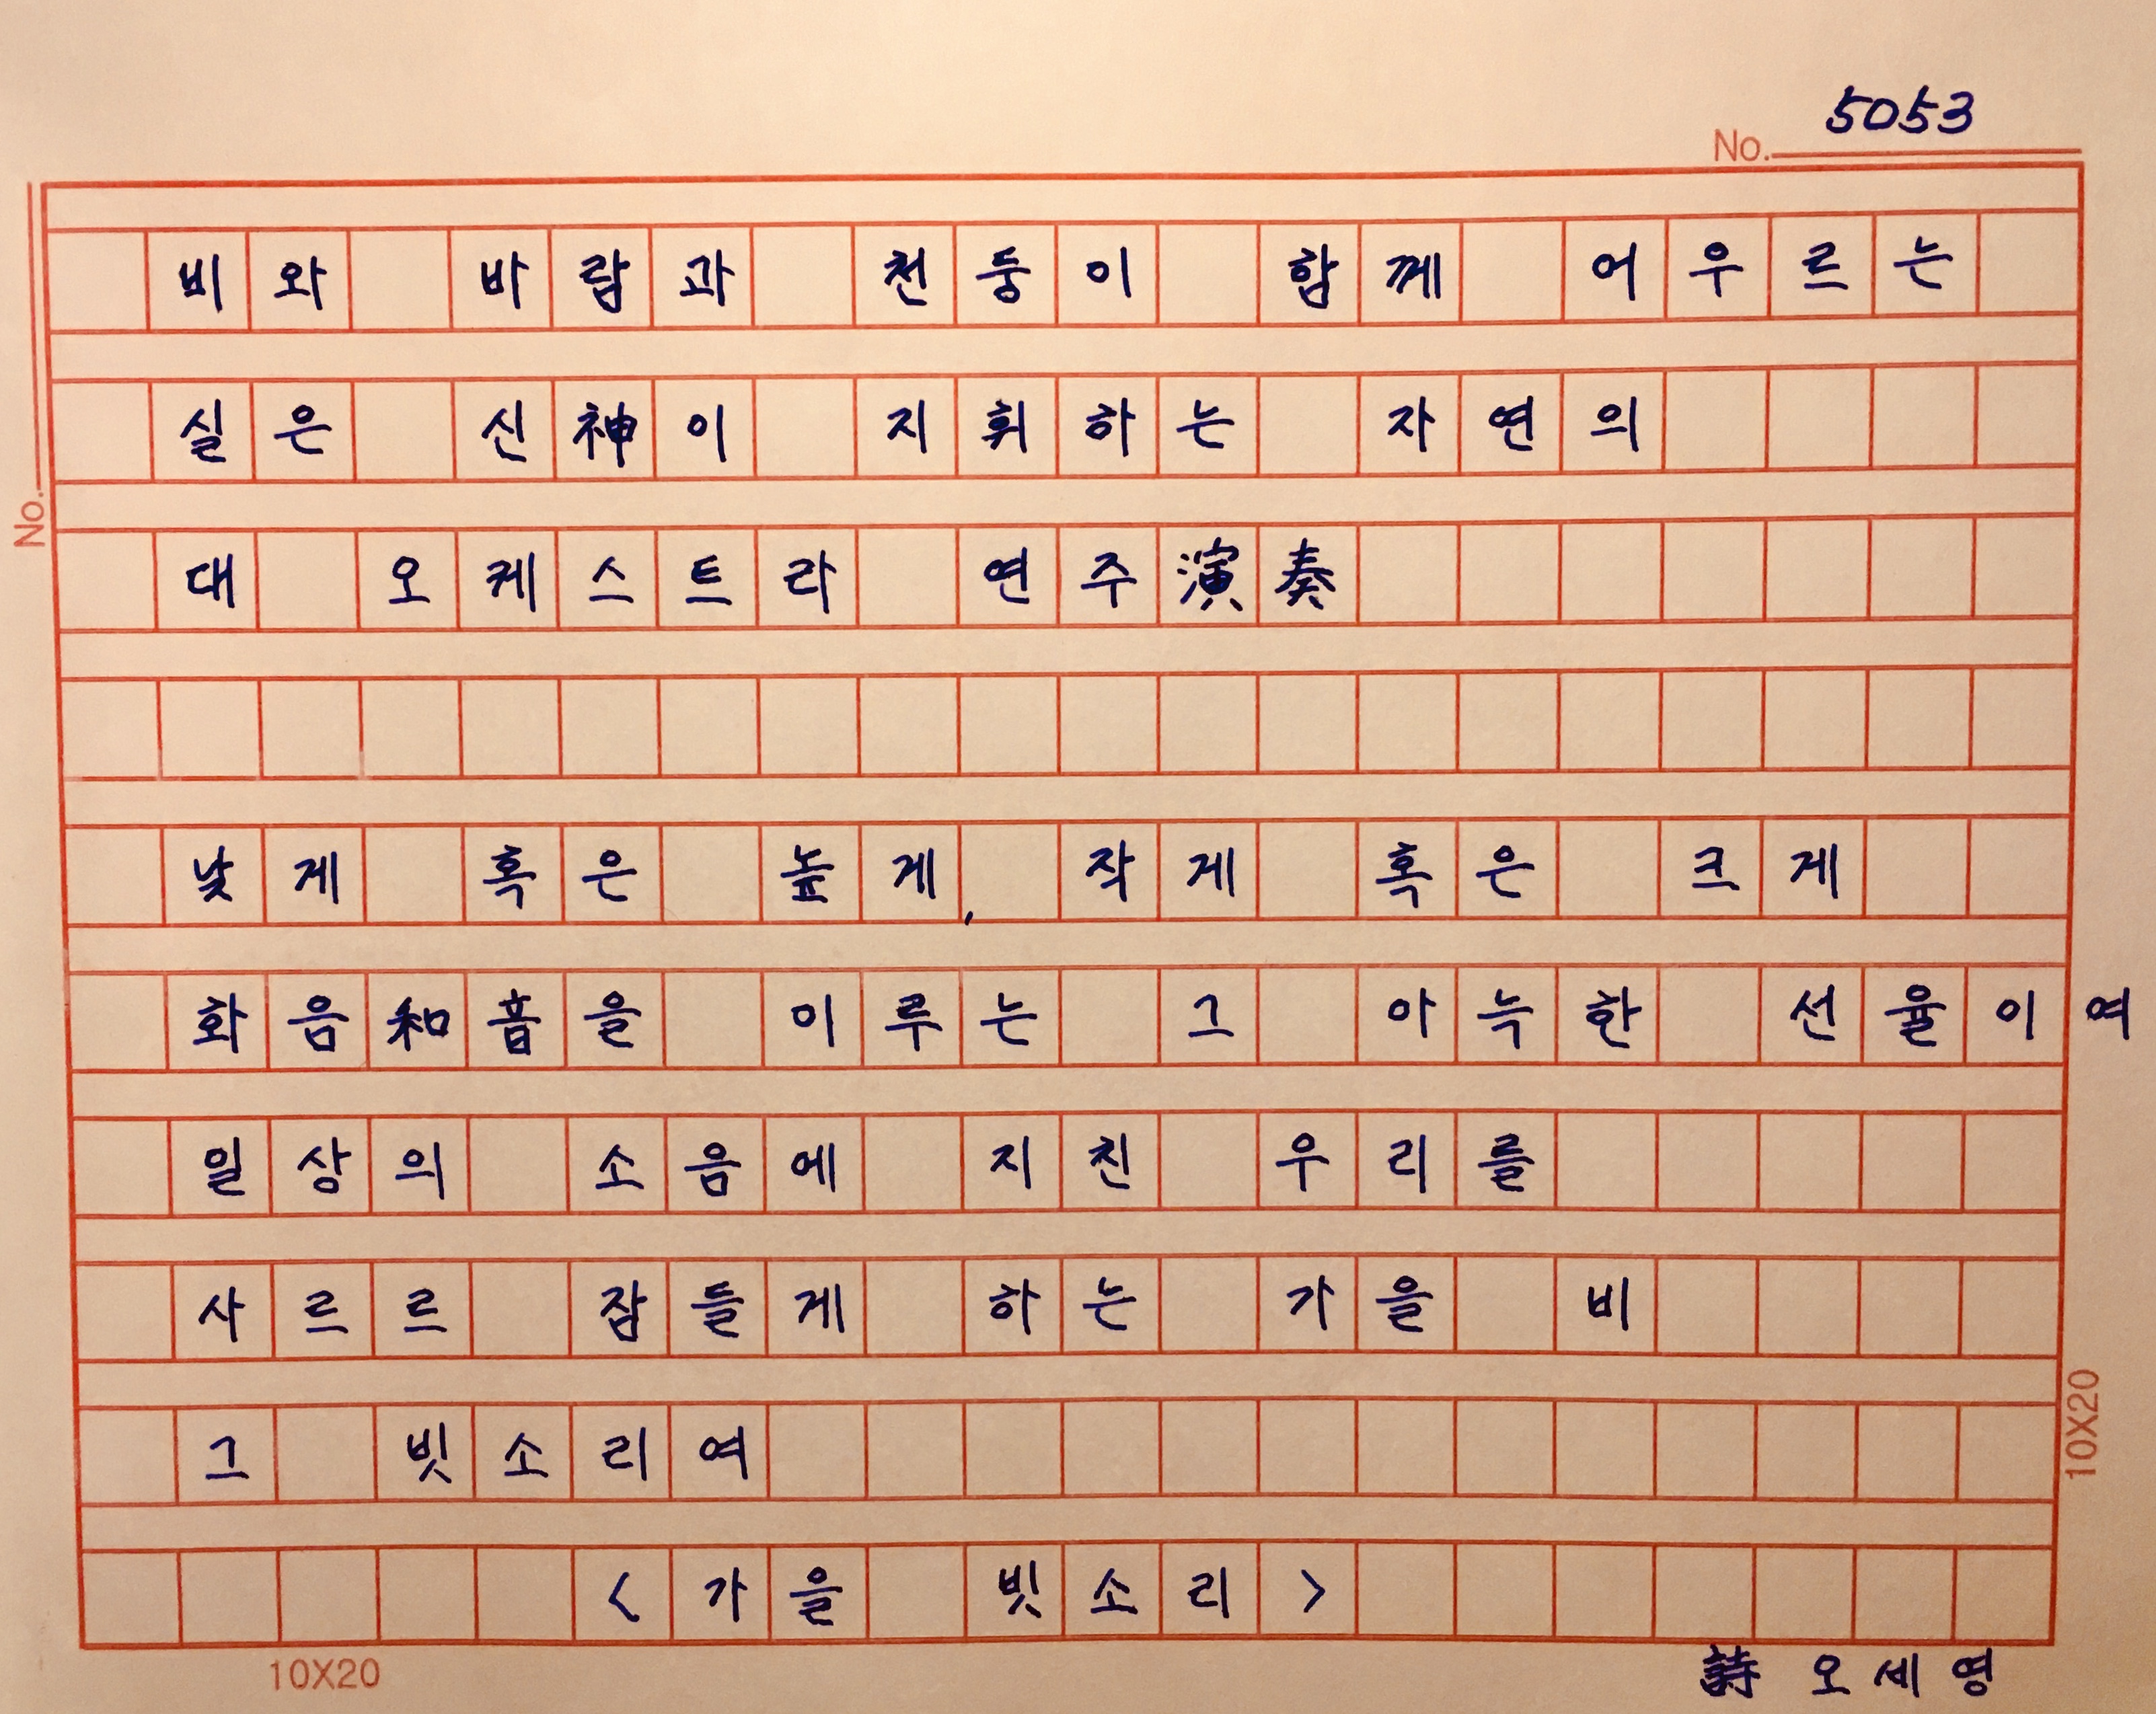 5053
No.
비와 바람과 천둥이 함께 어우르는
실은 신神이 지휘하는 자연의
No.
대 오케스트라 연주演奏
낮게 혹은 높게, 작게 혹은 크게
화음和音을 이루는 그 아늑한 선율이여
일상의 소음에 지친 우리를
사르르 잠들게 하는 가을 비
그 빗소리여
10X20
<가을 빗소리>
10X20
詩 오세영